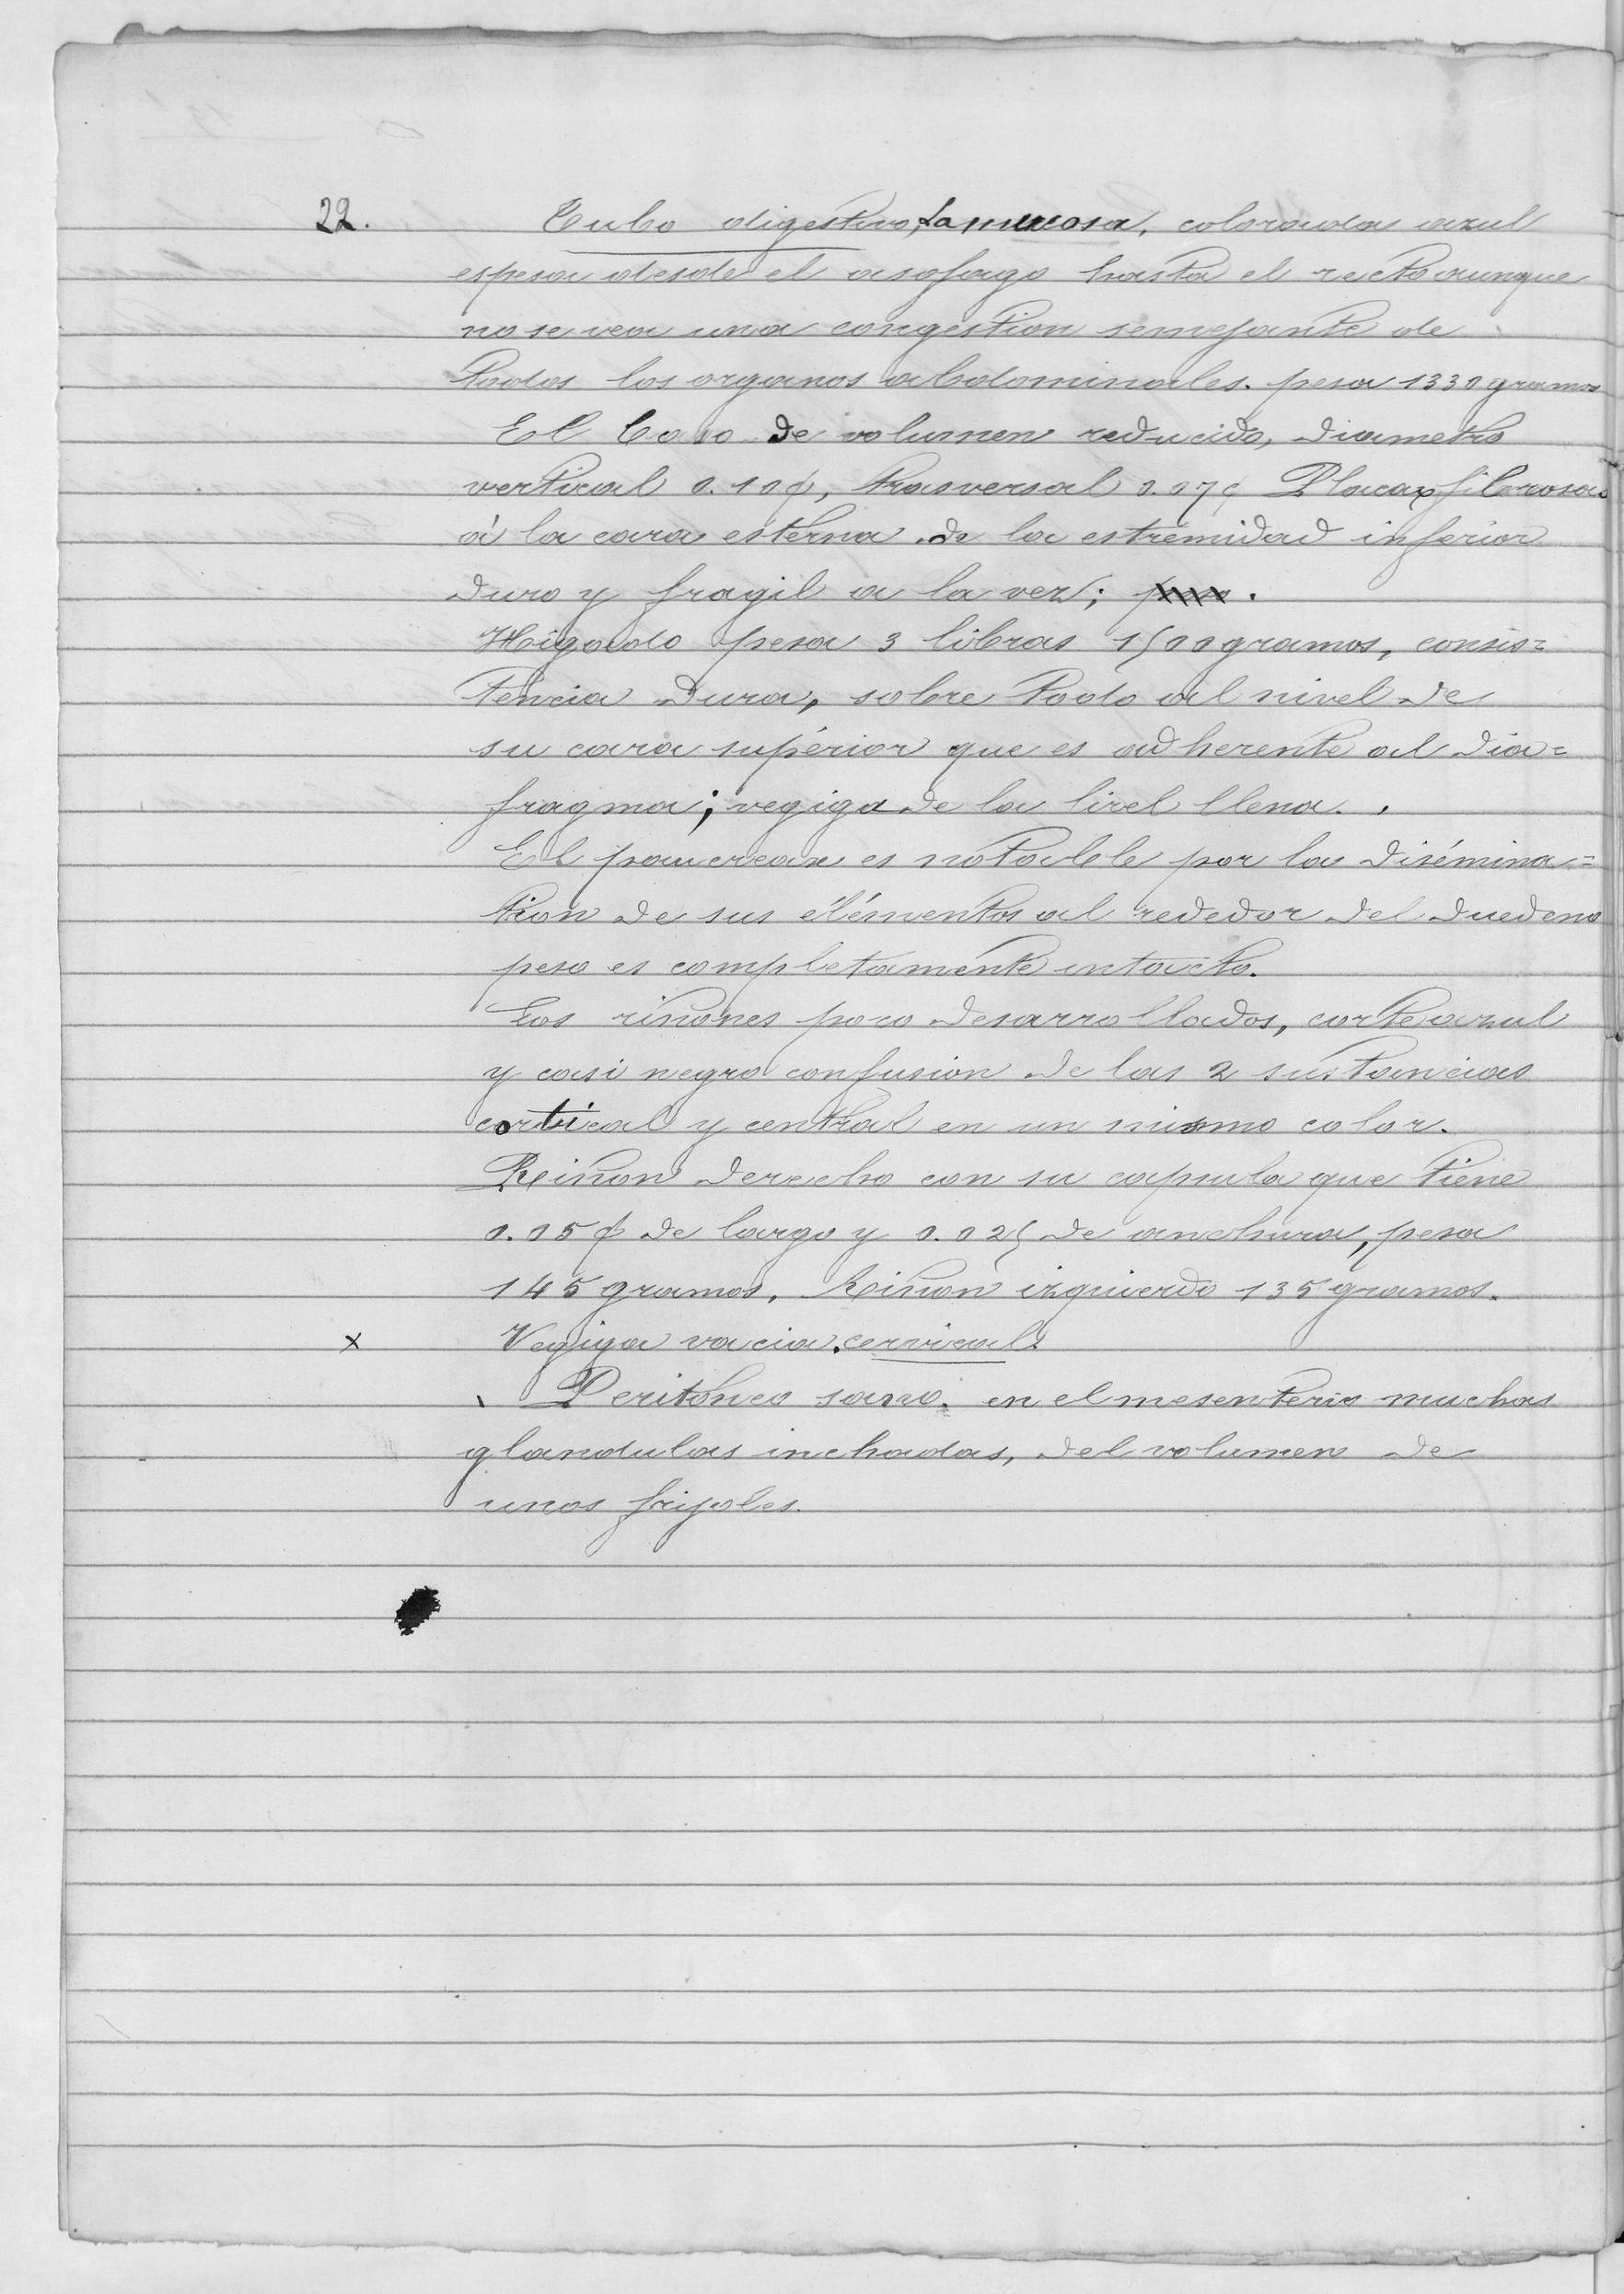 22.
Tubo digestivo, La mucosa, colorada azul
espesa desde el asofago hasta el recto aunque
no se vea una congestion semejante de
todos los organos abdominales. pesa 1330 gramos
El baso de volumen reducido, diametro
vertical 0.10¢, trasversal 0.07¢ Placax fibrosas
á la cara esterna de la estremidad inferior
duro y fragil a la vez; .
Higado pesa 3 libras 1500 gramos, consis=
tencia dura, sobre todo al nivel de
su cara superior que es adherente al dia=
fragma; vegiga de la llena.
El pancreax es notable por la disémina=
tion de sus éléméntos al rededor del duedeno
peso es completamente intacto.
Los riñones poco desarrollados, corte azul
y casi negro confusion de las 2 sustancias
cortical y central en un mismo color.
Reiñon derecho con su capsula que tiene
0.05¢ de largo y 0.025 de anchura, pesa
145 gramos. Reiñon izquierdo 135 gramos.
x Vegiga vacia. cervical.
Peritóneo sano. en el mesenterio muchas
glandulas inchadas, del volumen de
unos frijoles.